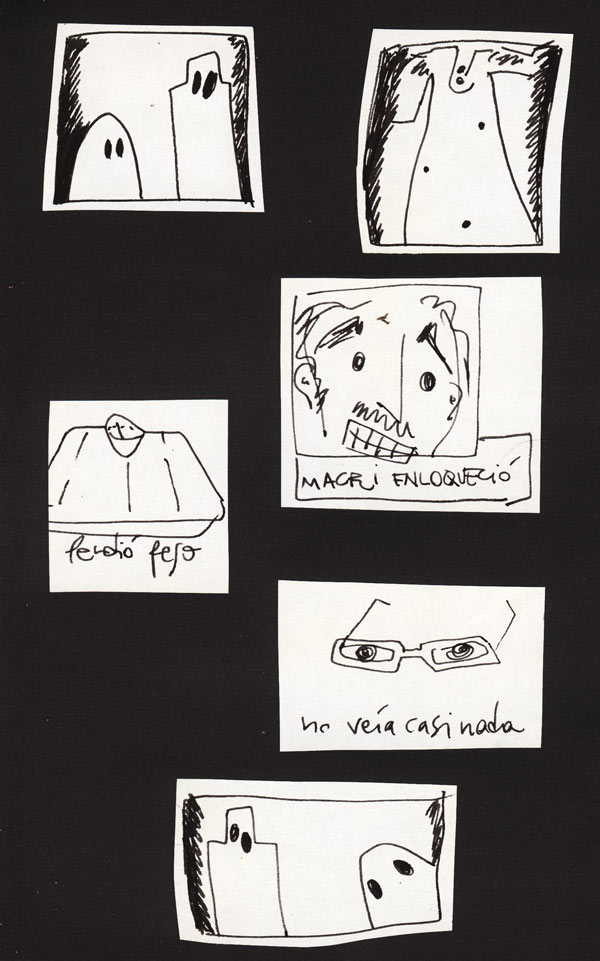 MACRI ENLOQUECIÓ
perdió peso
no veía casi nada